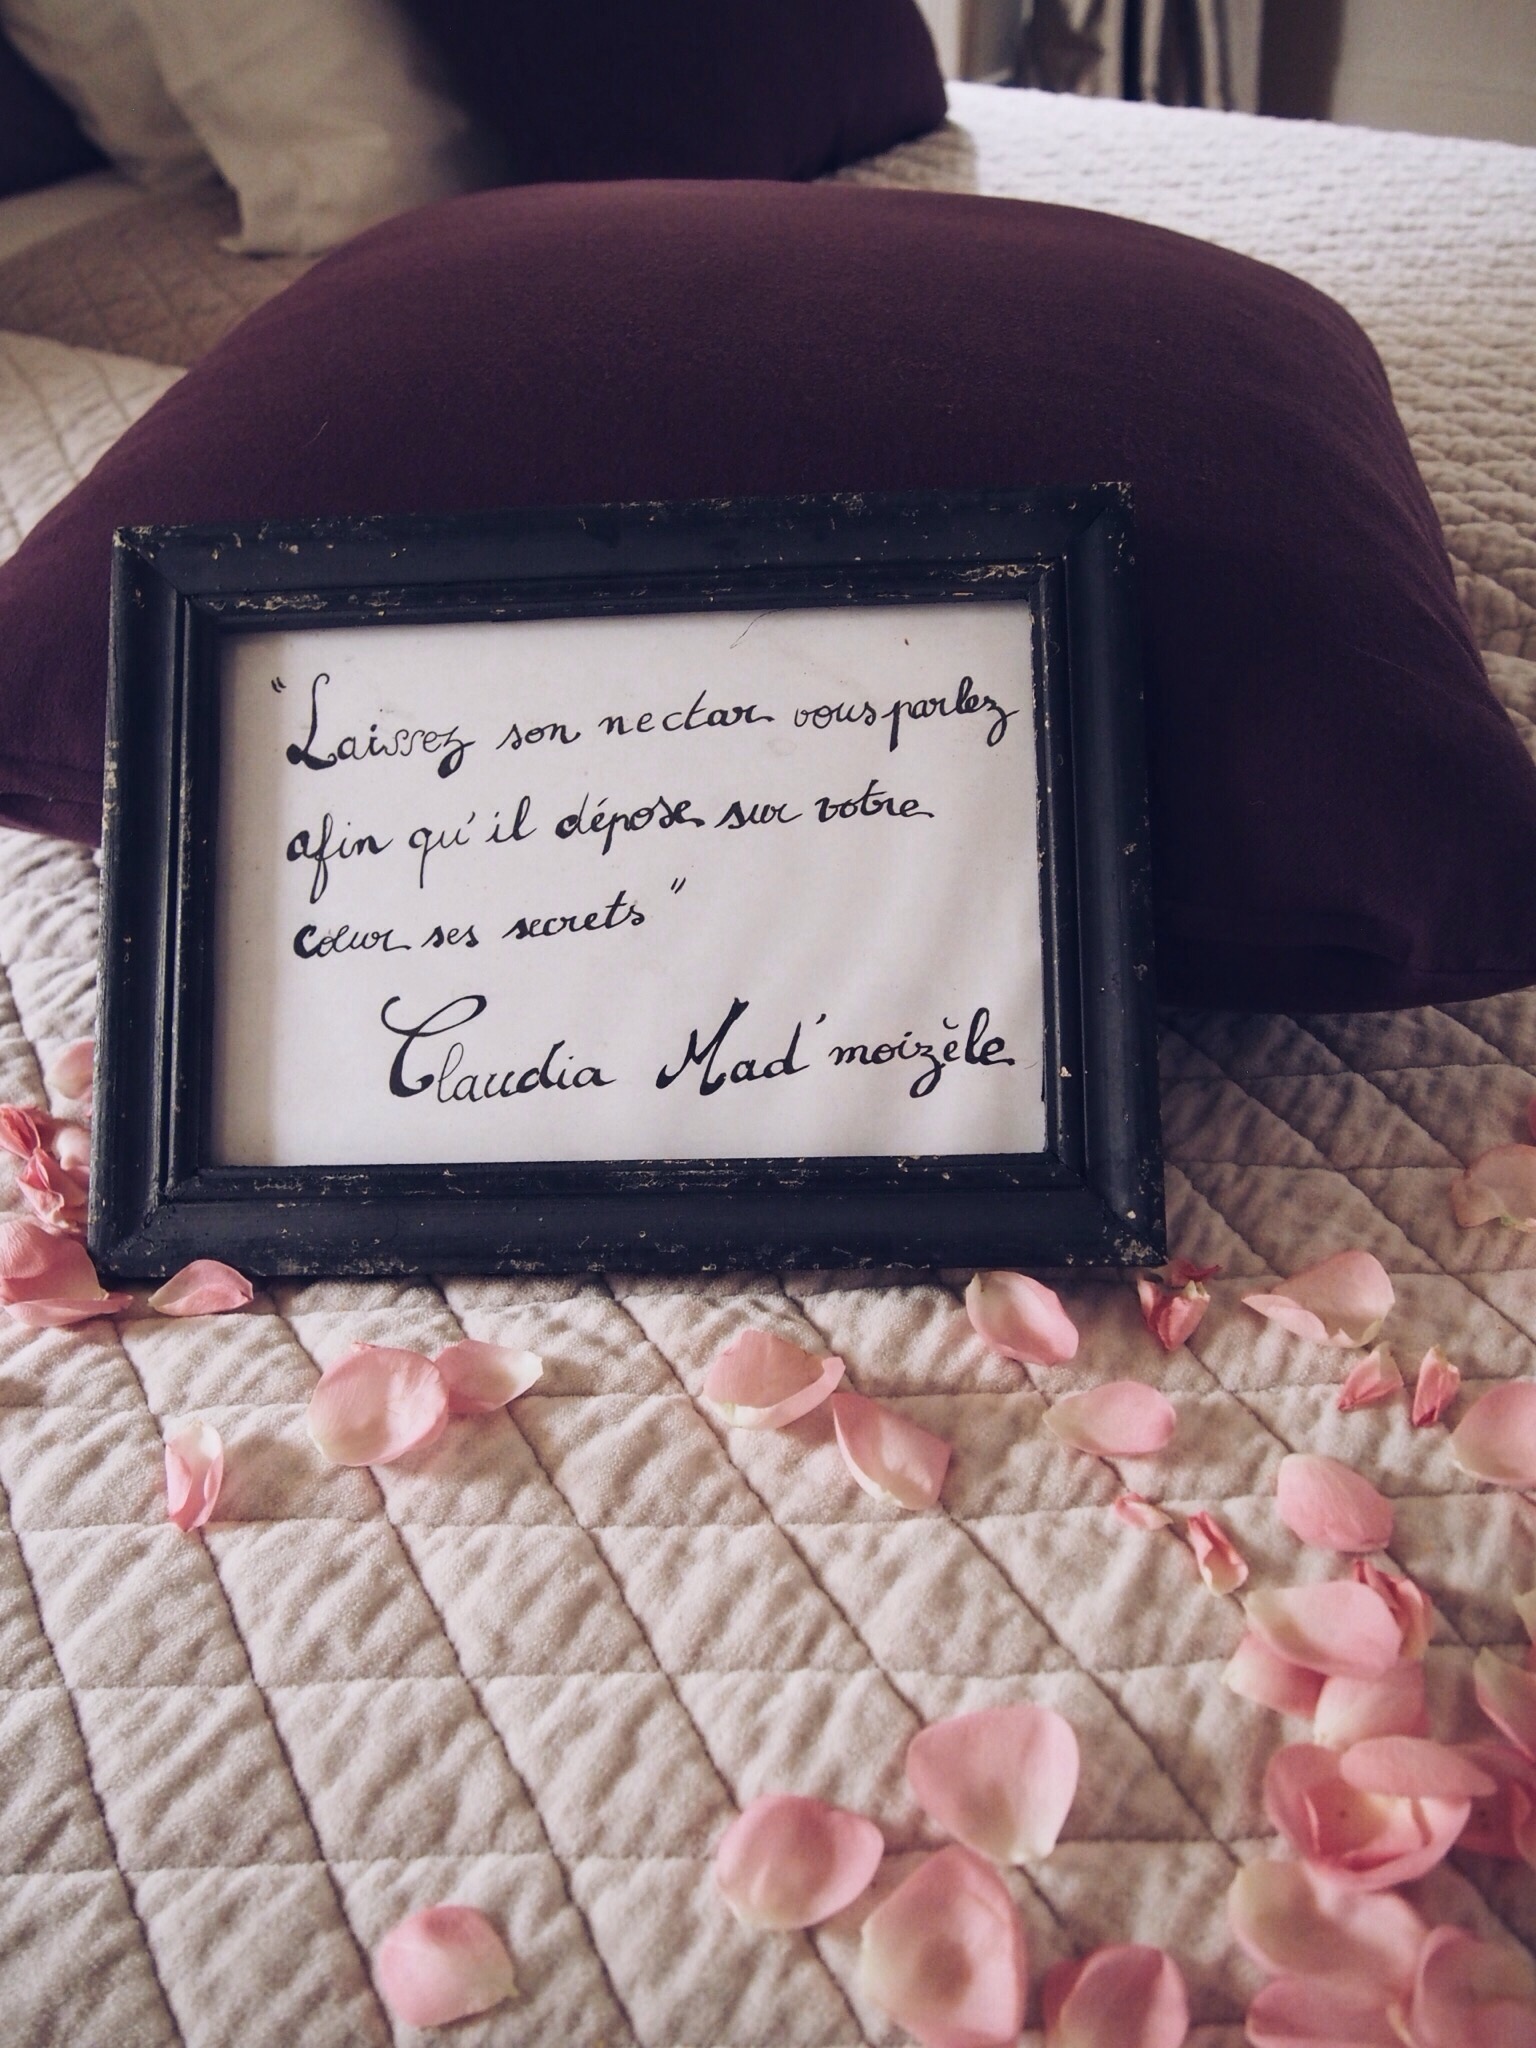 "Laissez son nectar vous parlez
afin qu'il dépose sur votre
cœur ses secrets"
Claudia Mad'moizèle